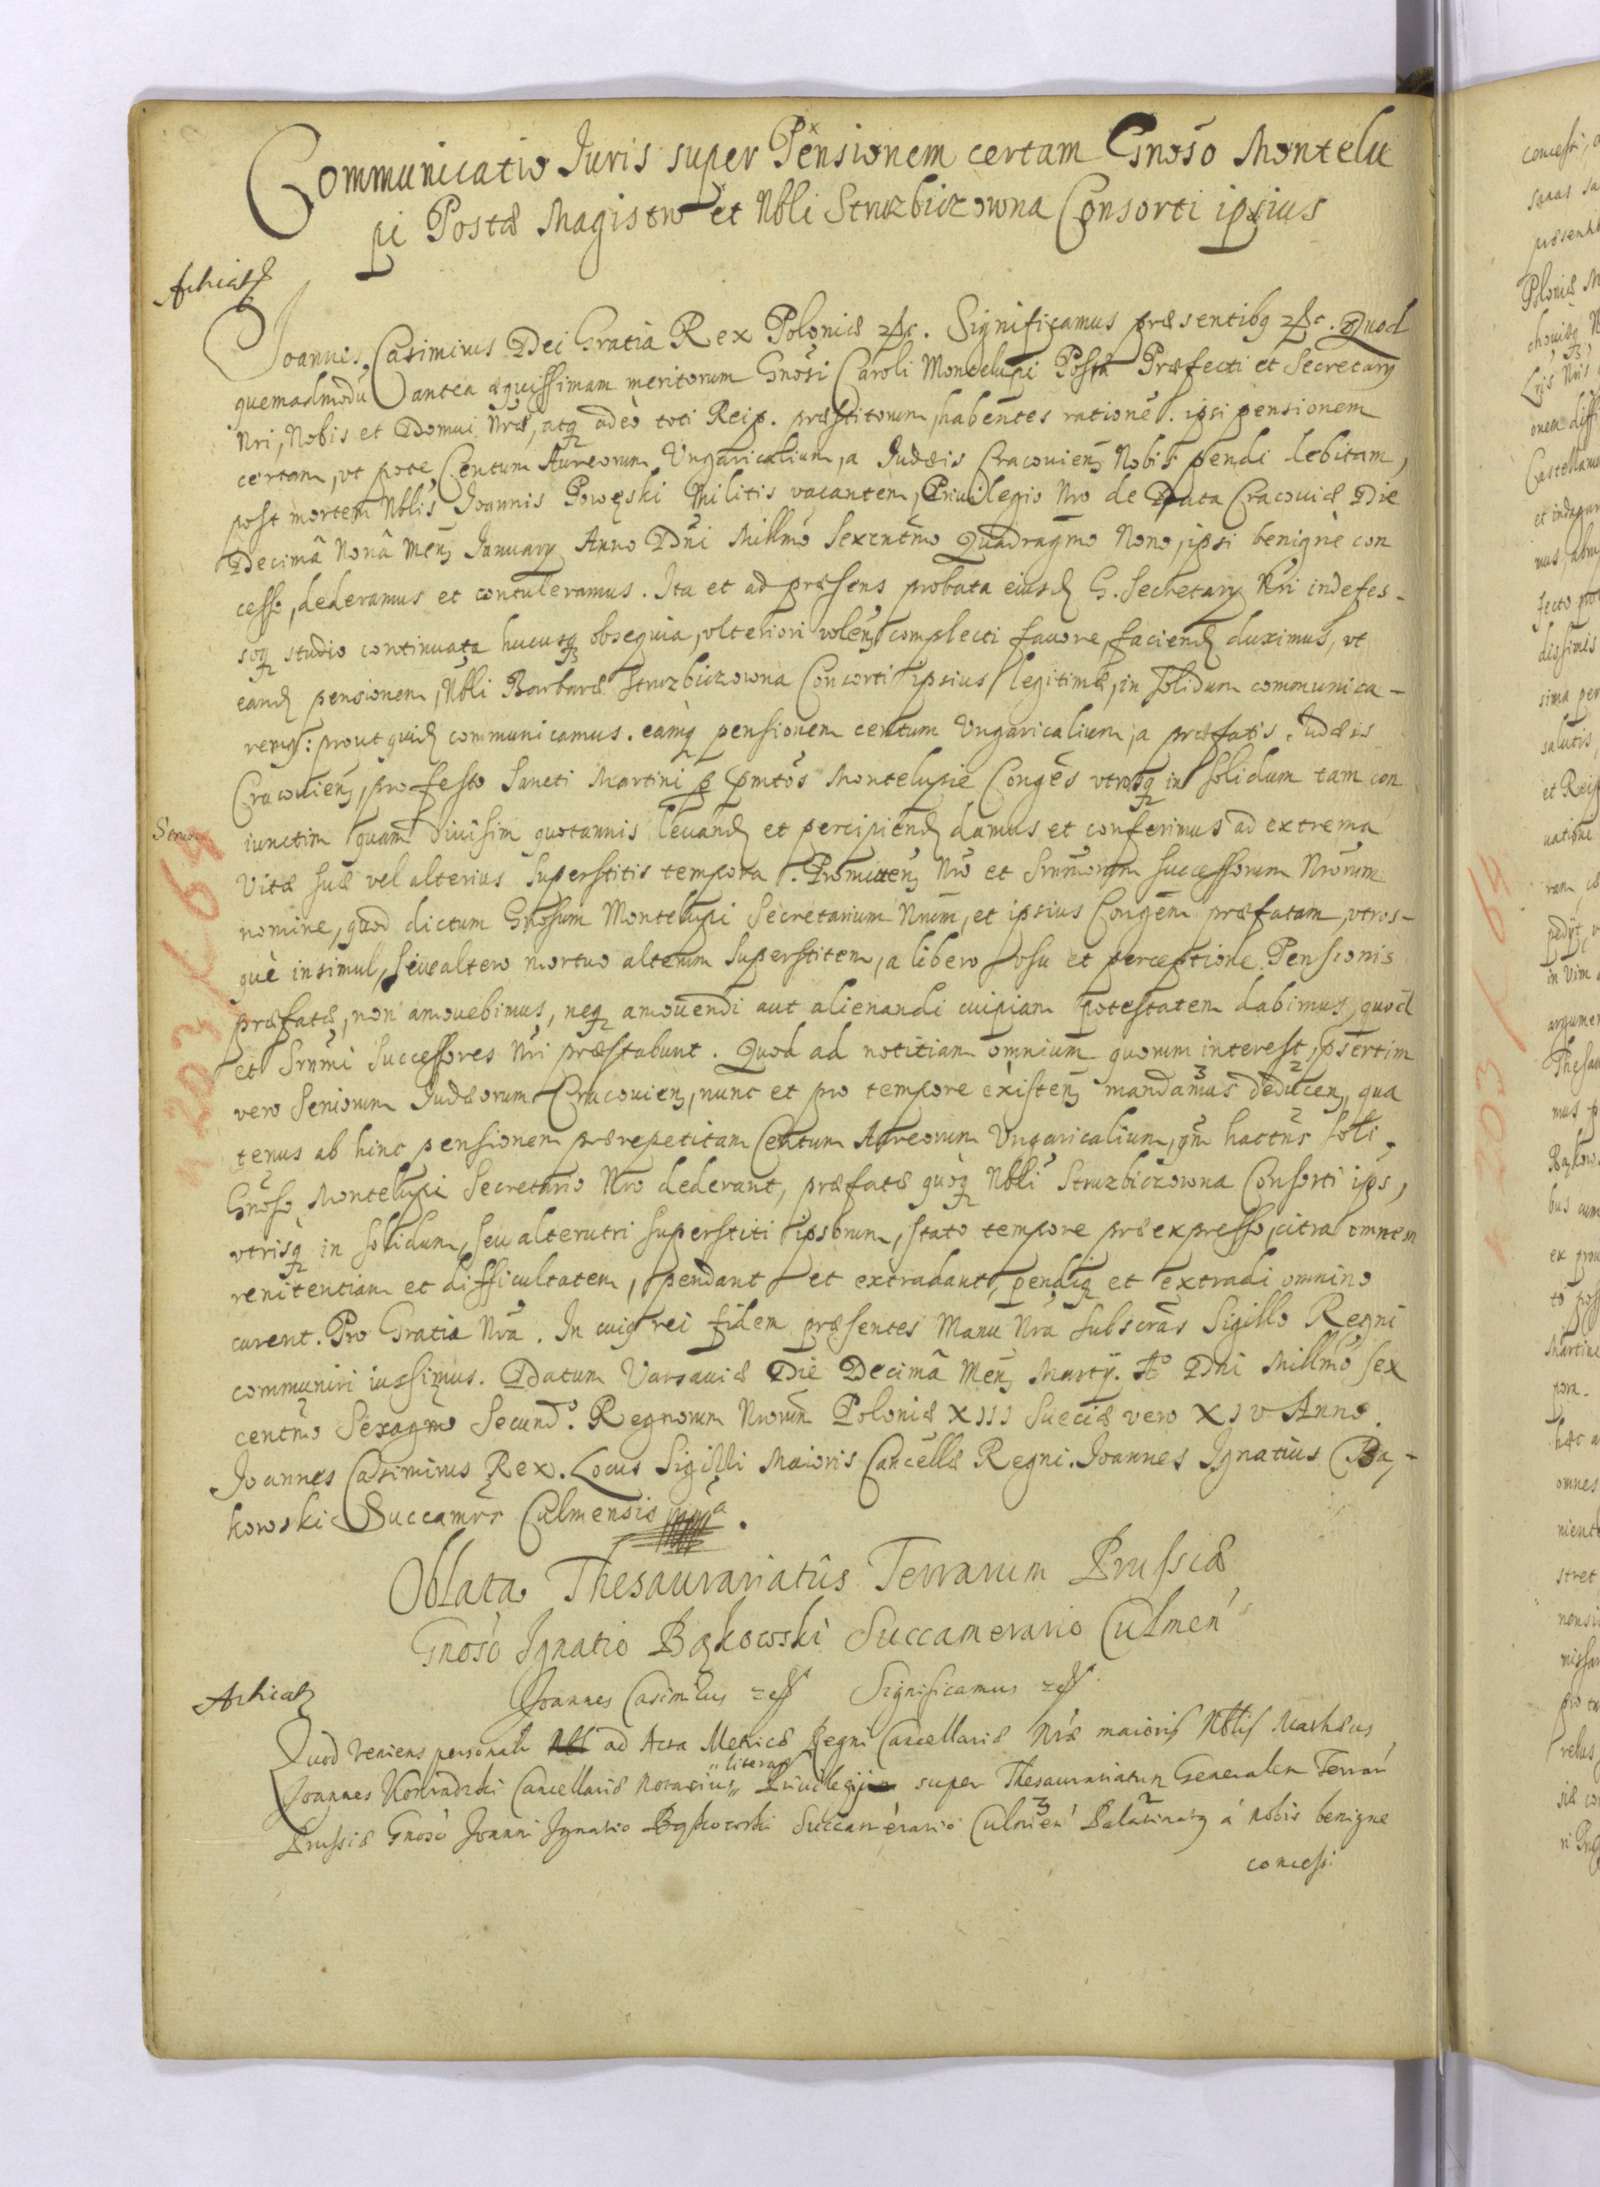 Communicatio Iuris super Pensionem certam Gnoso Montelu
pi Postæ Magistro et Nbli Struzbiczowna Consorti ipsius
Ioannes Casimirus Dei Gratia Rex Poloniæ etc. Significamus præsentibq etc. Quod
quemadmodū antea æquissimam meritorum Gnosi Caroli Montelupi Postæ Præfecti et Secretarij
Nri, Nobis et Domui Nræ, atq adeò toti Reip. præstitorum, habentes rationē. ipsi pensionem
certam, vt pote, Centum Aureorum Ungaricalium, a Iudæis Cracovien Nobis pendi debitam,
post mortem Nblis Ioannis Powęski Militis vacantem, Privilegio Nro de Data Cracoviæ Die
Decimâ Nonâ Men Ianuary Anno Dni Millmo Sexcntmo Quadragmo Nono, ipsi benignè con
cesso, dederamus et contuleramus. Ita et ad præsens probata eiusd G. Secretary Nri indefes-
soq studio continuata hucusq obsequia, vlteriori volen complecti favore, faciend duximus, vt
eand pensionem, Nbli Barbaræ Struzbiczowna Consorti ipsius legitimæ, in solidum communica-
remq: prout quid communicamus. eamq pensionem centum Ungaricalium, a præfatis Iudæis
Cracovien, pro festo Sancti Martini p pmtos Montelupie Conges vtrosq in solidum tam con
iunctim quam divisim quotannis levand et percipiend damus et conferimus ad extrema
Vitæ suæ vel alterius Superstitis tempora. Promitten Nro et Srmmorum Successorum Nrorum
nomine, quod dictum Gnosum Montelupi Secretarium Nrum, et ipsius Congem præfatam, vtros-
què insimul, sive altero mortuo alterum Superstitem, a libero vsu et perceptione Pensionis
præfatæ, non amovebimus, neq amovendi aut alienandi cuipiam potestatem dabimus, quod
et Srmmi Successores Nri præstabunt. Quod ad notitiam omnium quorum interest, psertim
vero Seniorum Iudæorum Cracovien, nunc et pro tempore existen mandamus deducen, qua
tenus ab hinc pensionem prærepetitam Centum Aureorum Ungaricalium, qm hactns soli
Gnoso Montelupi Secretario Nro dederant, præfatæ quoq Nbli Struzbiczowna Consorti ips,
vtrisq in solidum, seu alterutri superstiti ipsorum, stato tempore præexpresso, citra omnem
renitentiam et difficultatem, pendant et extradant, pendiq et extradi omnino
curent. Pro Gratia Nra. In cuiq rei fidem præsentes Manu Nra subscras Sigillo Regni
communiri iussimus. Datum Varsaviæ Die Decimâ Men Martij. Ao Dni Millmo sex
centmo Sexagmo Secundo. Regnorum Nrorum Poloniæ XIII Sueciæ vero XIV Anno.
Ioannes Casimirus Rex. Locus Sigilli Maioris Cancellæ Regni. Ioannes Ignatius Bą-
kowski Succamrs Culmensis
Oblata Thesaurariatûs Terrarum Prussiæ
Gnoso Ignatio Bąkowski Succamerario Culmen
Ioannes Casimirus Significamus
Quod veniens personalr ad Acta Metricæ Regni Cancellariæ Nræ maioris Nblis Mathæus
literas
Ioannes Konradzki Cancellariæ Notarius Privilegij super Thesaurariatum Generalem Terrar
Prussiæ Gnoso Ioanni Ignatio Bąkowski Succamerario Culmen Palatinatq á nobis benigne
concessi
203 k 64